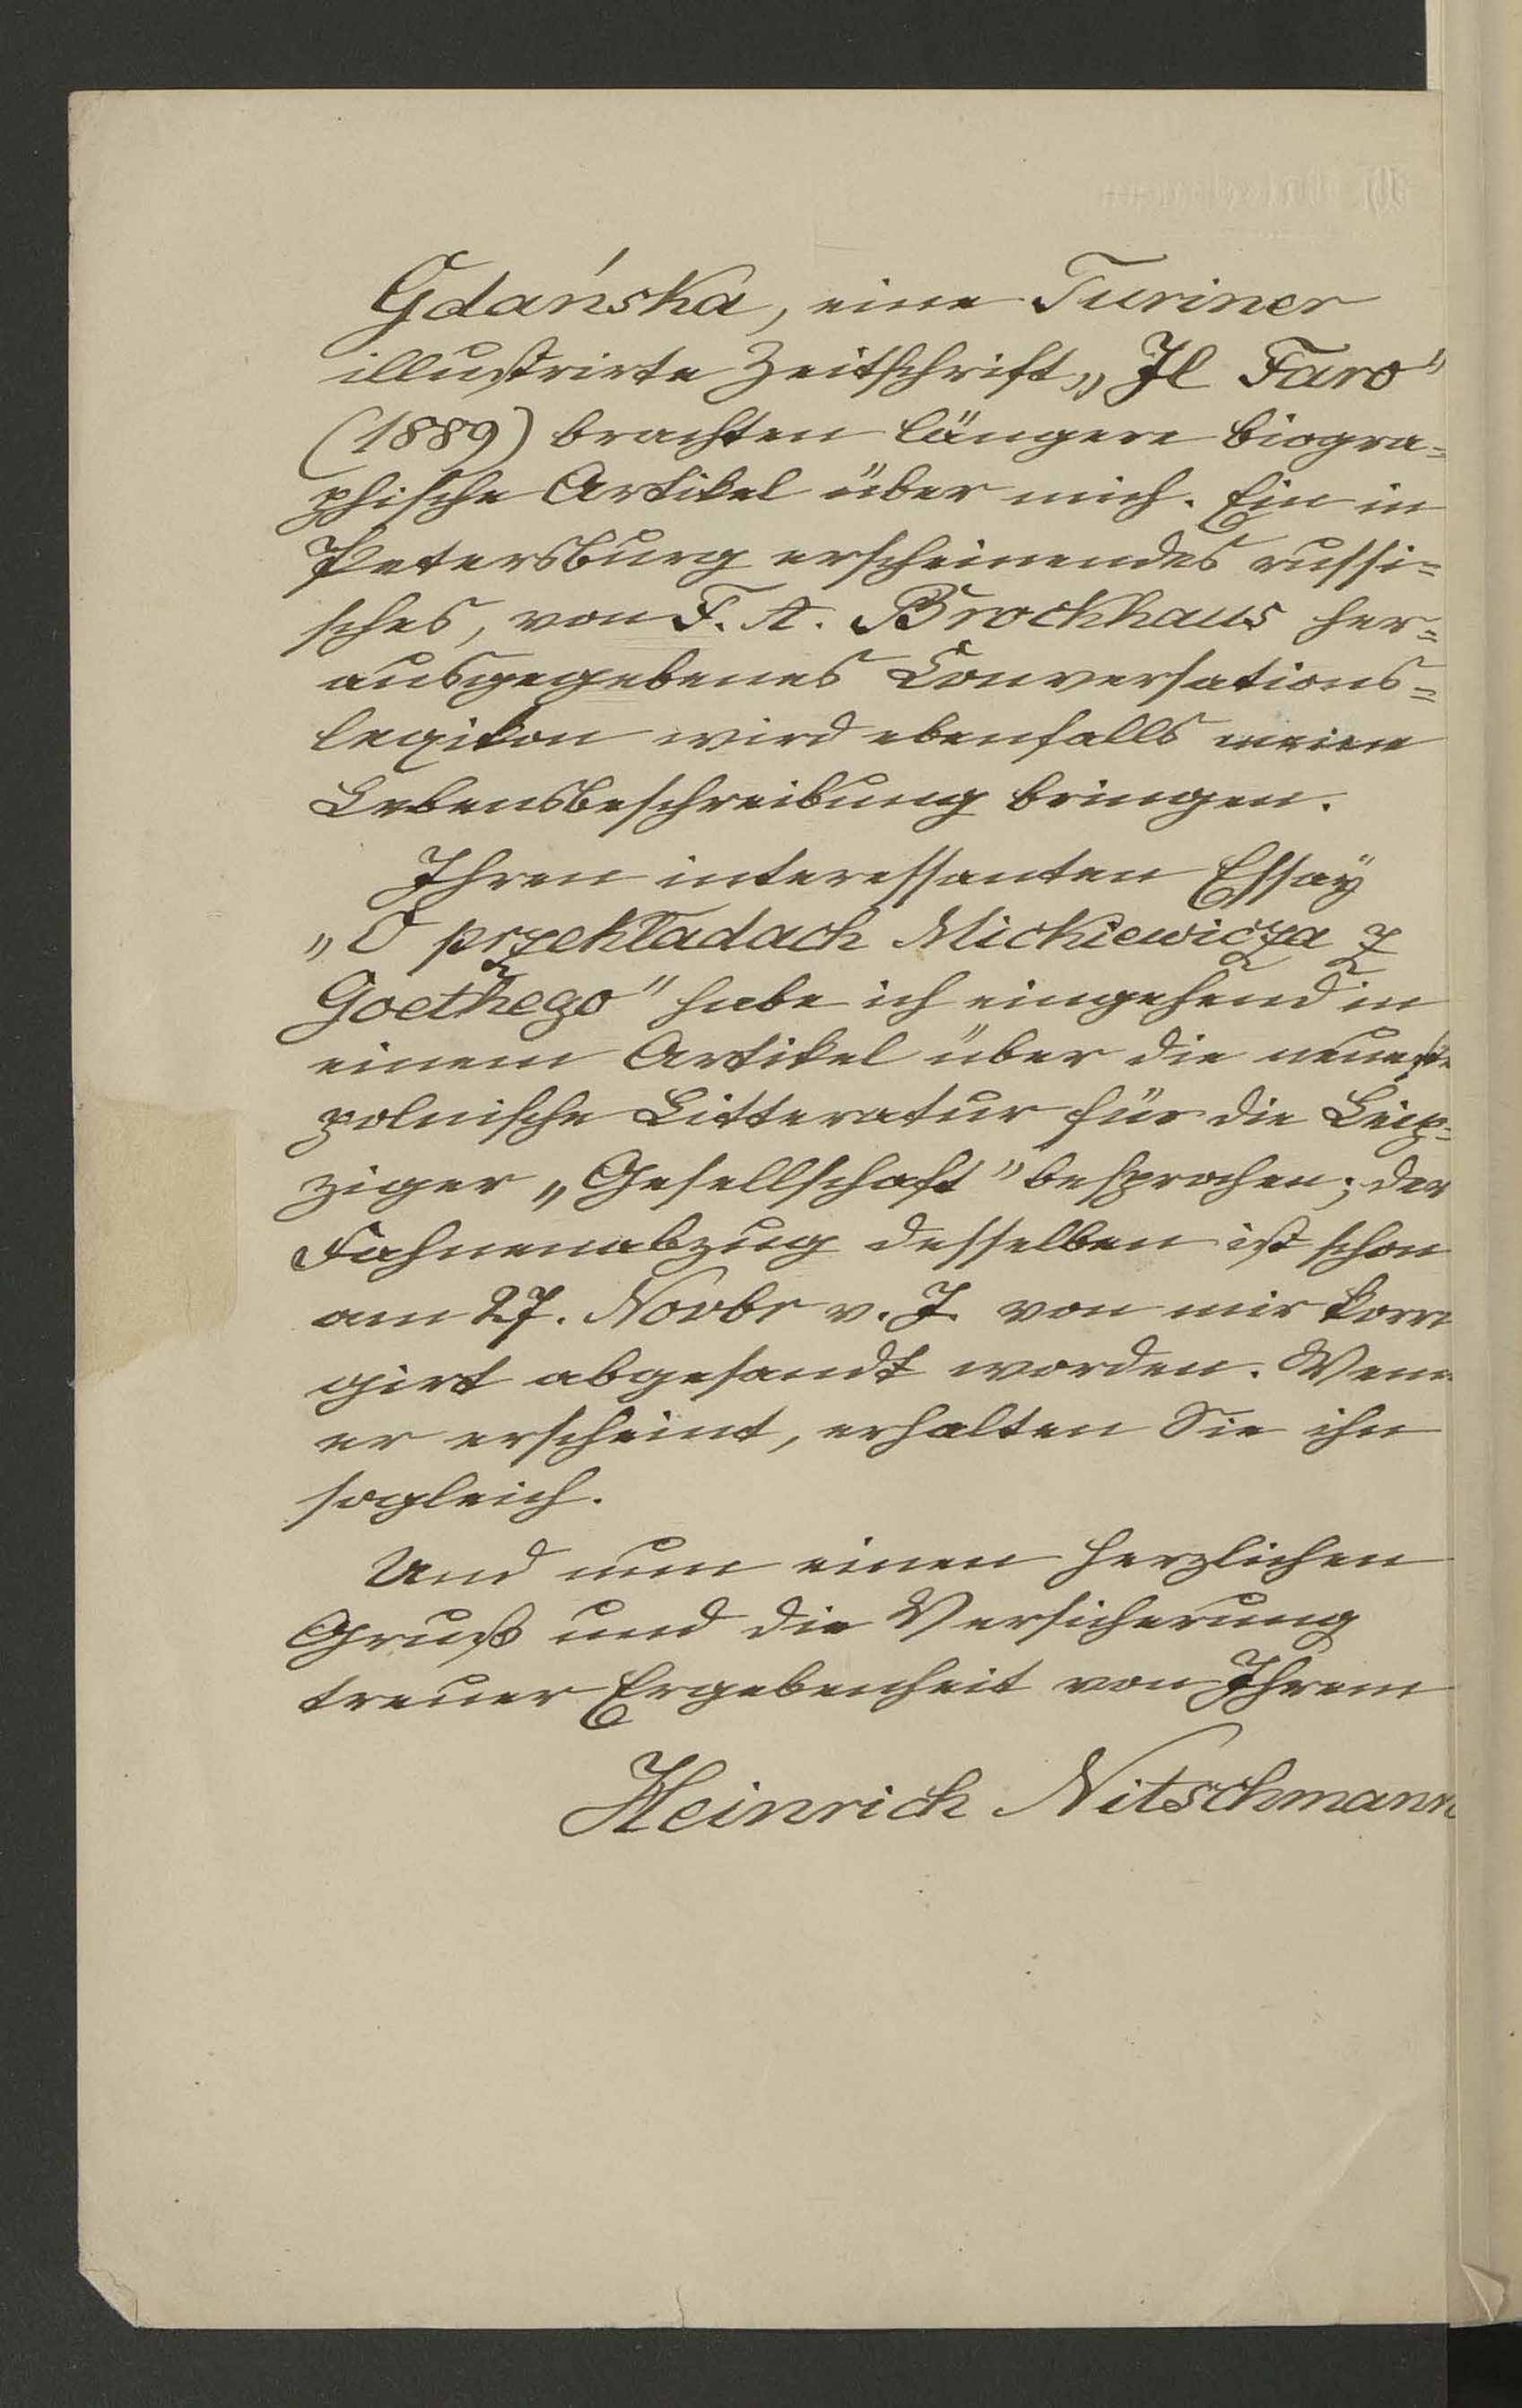 Gdańska, eine Turiner
illustrirte Zeitschrift „Il Faro"
(1889) brachten längere biogra=
phische Artikel über mich. Ein in
Petersburg erscheinendes russi=
sches, von F. A. Brockhaus her=
ausgegebenes Conversations=
lexikon wird ebenfalls meine
Lebensbeschreibung bringen.
Ihren interessanten Essay
„O przekładach Mickiewicza z
Goethego" habe ich eingehend in
einem Artikel über die neueste
polnische Litteratur für die Leip=
ziger „Gesellschaft" besprochen; der
Fahnenabzug desselben ist schon
am 27. Novbr v. J. von mir korri
girt abgesandt worden. Wenn
er erscheint, erhalten Sie ihn
sogleich.
Und nun einen herzlichen
Gruß und die Versicherung
treuer Ergebenheit von Ihrem
Heinrich Nitschmann